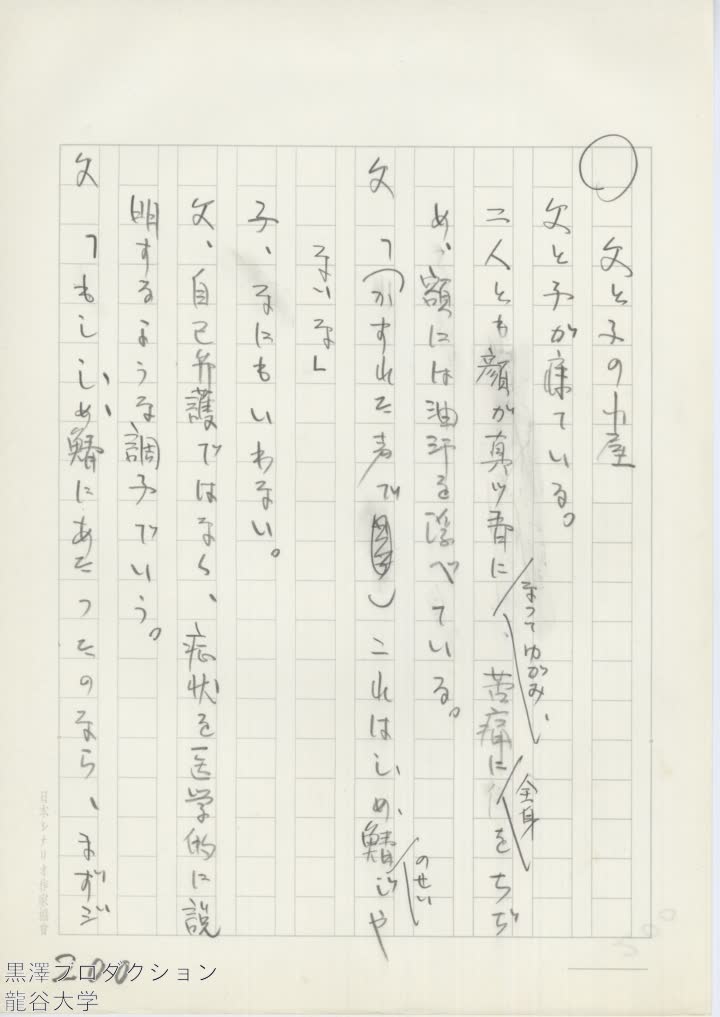 ○ 父と子の小屋
父と子が寝ている。
二人とも顔が真ッ青になってゆがみ、苦痛に全身をちぢ
め、額には油汗を浮べている。
父「(かすれた声で)これはしめ鯖のせいじゃ
ないな」
子、なにもいわない。
父、自己弁護ではなく、症状を医学的に説
明するような調子でいう。
父「もししめ鯖にあたったのなら、まずジ
日本シナリオ作家協會
200
黒澤プロダクション
龍谷大学